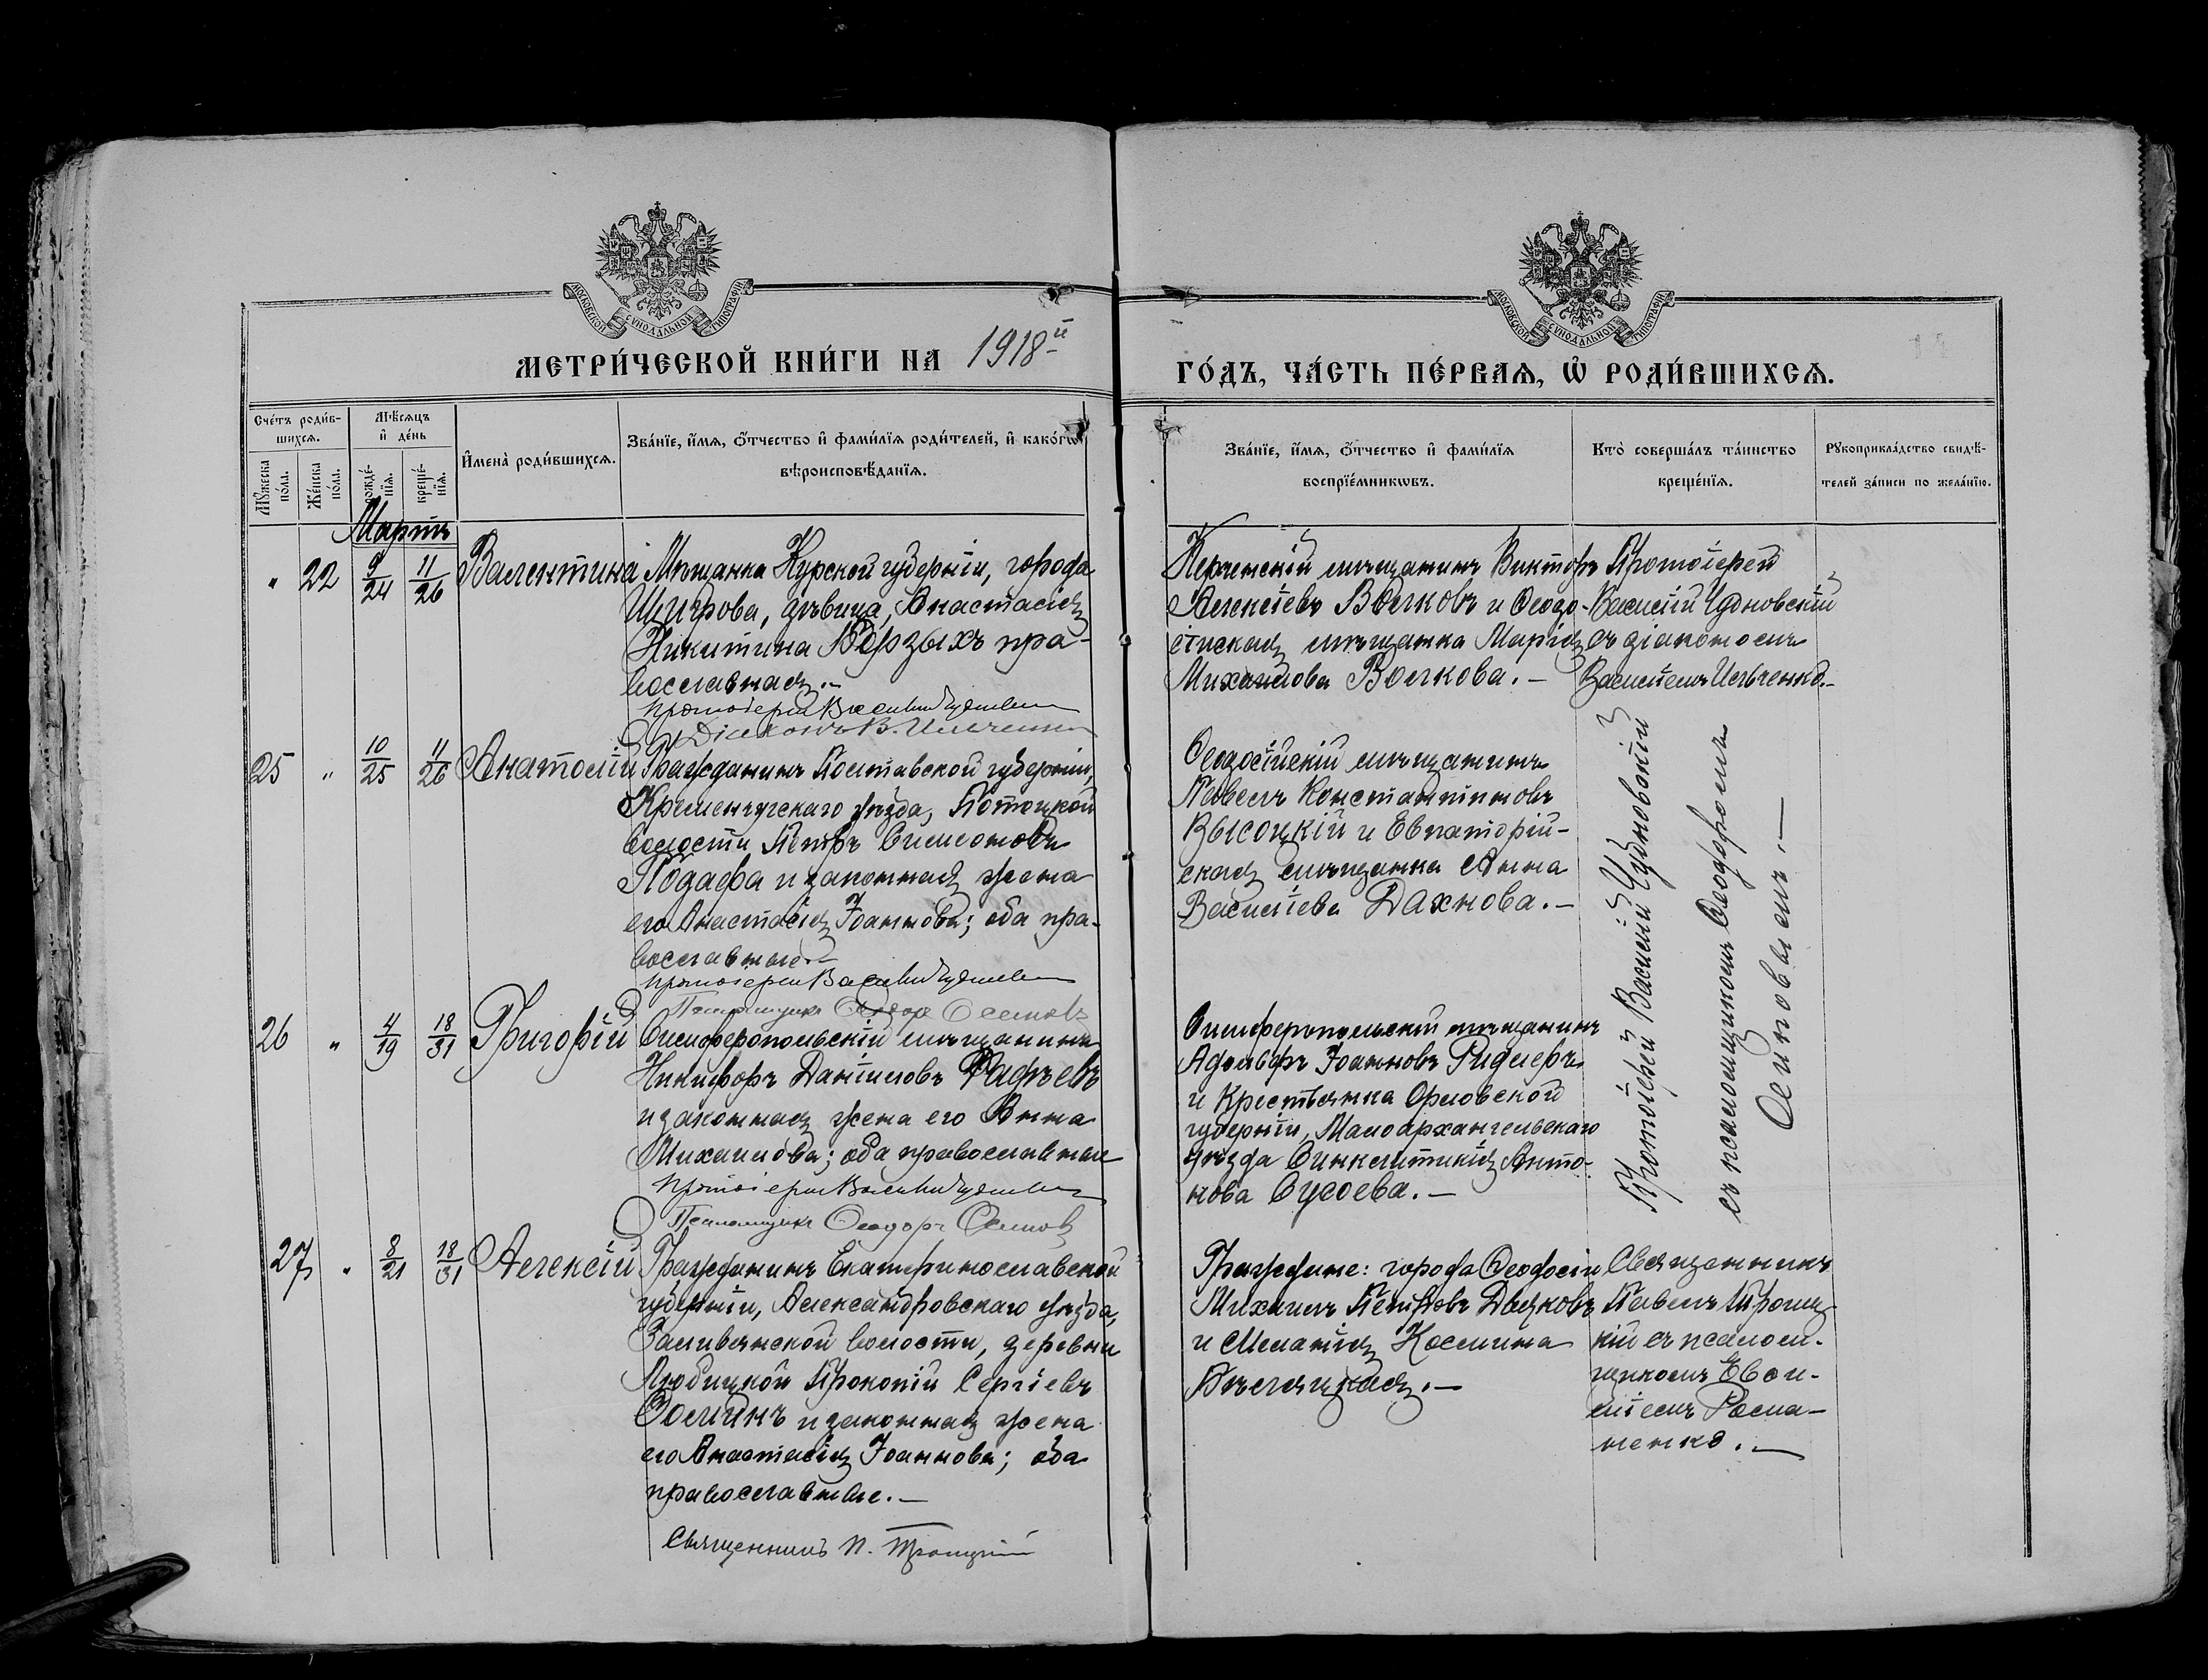 МОСКОВСКОЙ СѴНОДАЛЬНОЙ ТИПОГРАФІИ
МОСКОВСКОЙ СѴНОДАЛЬНОЙ ТИПОГРАФІИ
МЕТРИ́ЧЕСКОЙ КНИ́ГИ НА 1918й
ГО́ДЪ, ЧА́СТЬ ПЕ́РВАѦ, Ѡ҆ РОДИ́ВШИХСѦ.
Сче́тъ роди́в-
шихсѧ.
Мꙋ́жеска по́ла.
Же́нска по́ла.
Мѣ́сѧцъ
и҆ де́нь
рожде́-нїѧ.
креще́-нїѧ.
И҆мена̀ роди́вшихсѧ.
Зва́нїе, и҆́мѧ, ѻ҆́тчество и҆ фами́лїѧ роди́телей, и҆ како́гѡ
вѣроисповѣ́данїѧ.
Зва́нїе, и҆́мѧ, ѻ҆́тчество и҆ фами́лїѧ
воспрїе́мникѡвъ.
Кто̀ соверша́лъ та́инство
креще́нїѧ.
Рꙋкоприкла́дство свидѣ́-
телей за́писи по жела́нїю.
Мартъ
" 22 9/24 11/26 Валентина
Мѣщанка Курской губерніи, города
Щигрова, дѣвица, Анастасія
Никитина Борзыхъ пра-
вославная.-
Протоіерей Василій Чудновскій
Діаконъ В. Ильченко
Керченскій мѣщанинъ Викторъ
Алексіевъ Волковъ и Ѳеодо-
сійская мѣщанка Марія
Михаилова Волкова.-
Протоіерей
Василій Чудновскій
съ діакономъ
Василіемъ Ильченко.-
25 " 10/25 11/26 Анатолій
Гражданинъ Полтавской губерніи,
Кременчугскаго уѣзда, Потоцкой
волости Петръ Симеоновъ
Подафа и законная жена
его Анастасія Іоаннова; оба пра-
вославные.-
Протоіерей Василій Чудновскій
Псаломщикъ Ѳеодоръ Осиповъ
Ѳеодосійскій мѣщанинъ
Павелъ Константиновъ
Высоцкій и Евпаторій-
ская мѣщанка Анна
Василіева Дахнова.-
Протоіерей Василій Чудновскій
съ псаломщикомъ Ѳеодоромъ
Осиповымъ.-
26 " 4/19 18/31 Григорій
Симферопольскій мѣщанинъ
Никифоръ Даніиловъ Фадѣевъ
и законная жена его Анна
Михаилова; оба православные
Протоіерей Василій Чудновскій
Псаломщикъ Ѳеодоръ Осиповъ
Симферопольскій мѣщанинъ
Адольфъ Іоанновъ Ридлеръ
и Крестьянка Орловской
губерніи, Малоархангельскаго
уѣзда Синклитикія Анто-
нова Сусоева.-
27 " 8/21 18/31 Алексій
Гражданинъ Екатеринославской
губерніи, Александровскаго уѣзда,
волости, деревни
Любицкой Прокопій Сергіевъ
и законная жена
его Анастасія Іоаннова; оба
православные.-
Священникъ П. Троицкій
Граждане: города Ѳеодосіи
Михаилъ Петровъ Дацковъ
и Меланія Космина
Священникъ
Павелъ Троиц-
кій съ псалом-
щикомъ Евѳи-
міемъ Рома-
ненко.-